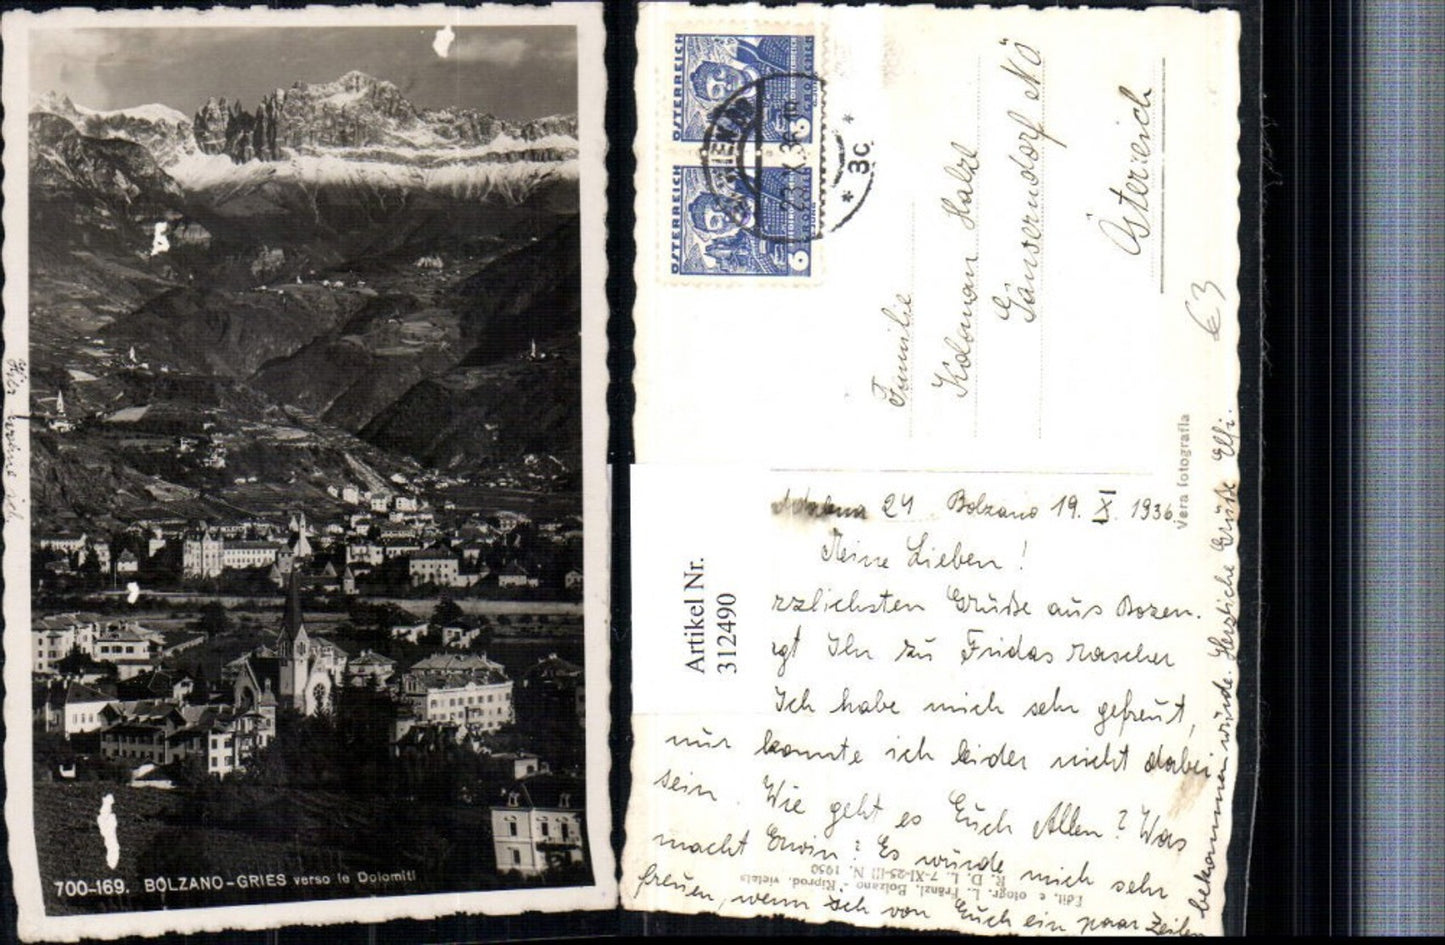 Hier wohne ich
700-169. BOLZANO-GRIES verso le Dolomiti
ÖSTERREICH
6 GROSCHEN
ÖSTERREICH
6 GROSCHEN
WIEN
3c
Familie
Koloman Halzl
Gänserndorf NÖ
Österreich
€ 3
Vera fotografia
Artikel Nr.
312490
24 Bolzano 19. X. 1936
Meine Lieben!
rzlichsten Grüße aus Bozen.
gt Ihr zu Fridas rascher
Ich habe mich sehr gefreut,
nur konnte ich leider nicht dabei
sein. Wie geht es Euch Allen? Was
macht Erwin? Es würde mich sehr
freuen, wenn ich von Euch ein paar Zeilen
bekommen würde. Herzliche Grüße Elli.
Edit. e fotogr. L. Fränzl. Bolzano - Riprod. vietata
R. D. L. 7-XI-25-III N. 1950